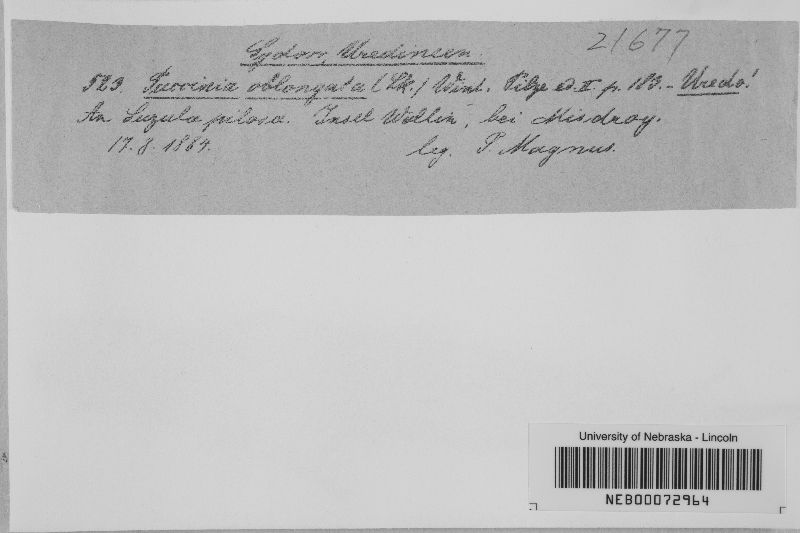 Sydow Uredineen.
21677
523. Puccinia oblongata (Lk.) Wint. Pilze ed. II. p. 183. - Uredo!
An Luzula pilosa. Insel Wollin, bei Misdroy.
17. 8. 1864. leg. P. Magnus.
University of Nebraska - Lincoln
NEB00072964